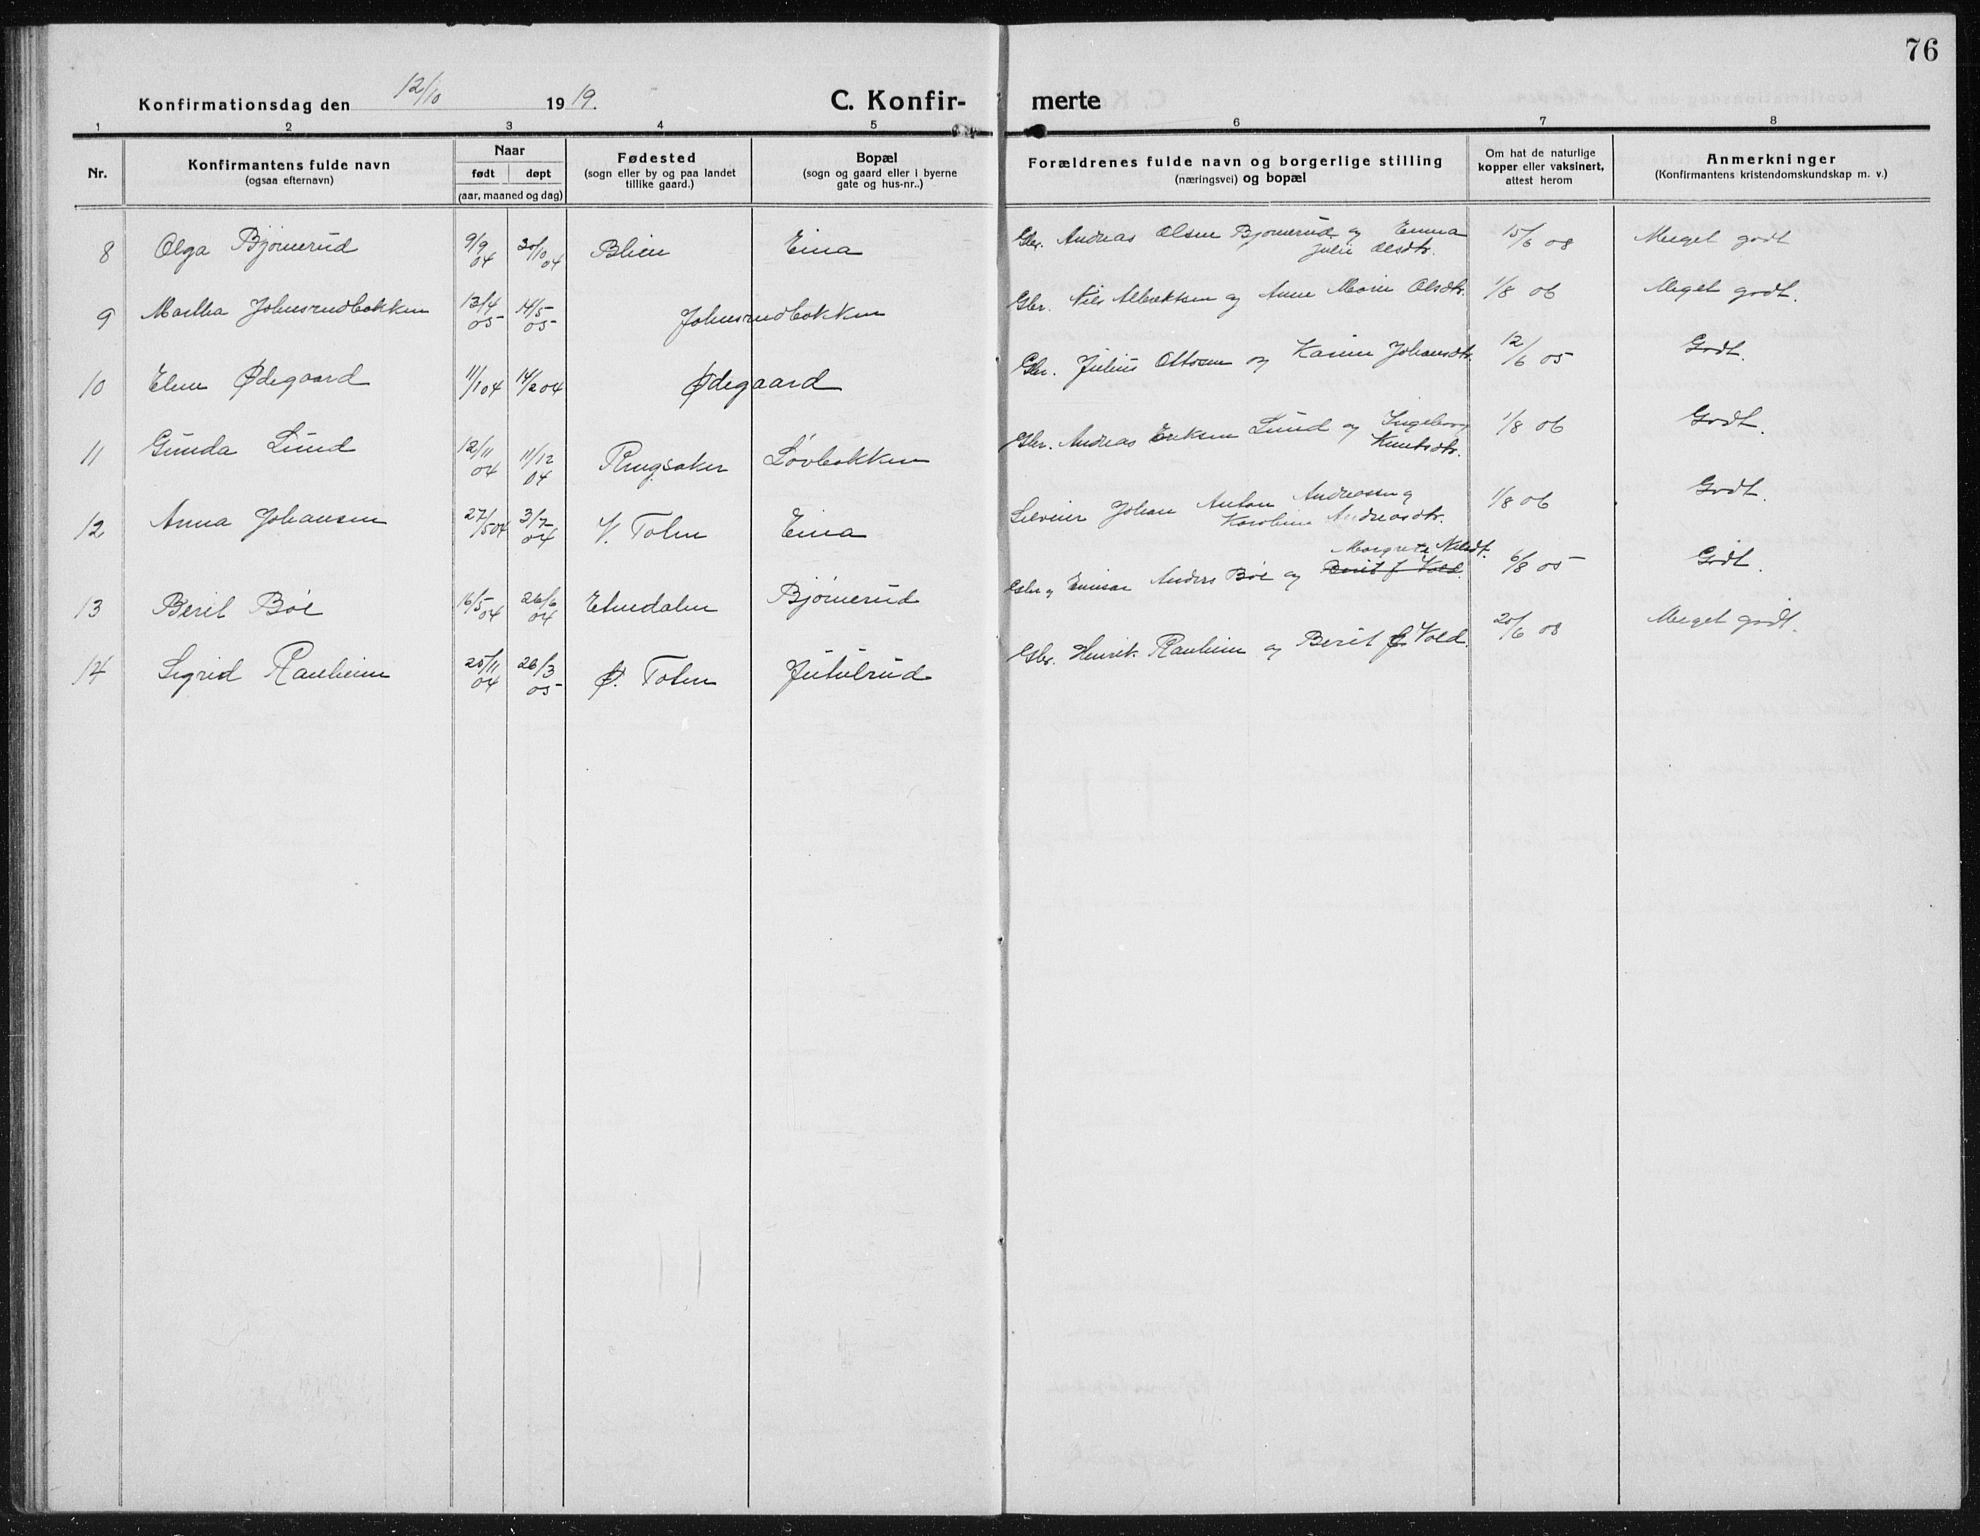 76
Konfirmationsdag den 12/10 1919. C. Konfirmerte
1 2 3 4 5 6 7 8
Nr.
Konfirmantens fulde navn
(ogsaa efternavn)
Naar
født døpt
(aar, maaned og dag)
Fødested
(sogn eller by og paa landet
tillike gaard.)
Bopæl
(sogn og gaard eller i byerne
gate og hus-nr.)
Forældrenes fulde navn og borgerlige stilling
(næringsvei) og bopæl
Om hat de naturlige
kopper eller vaksinert,
attest herom
Anmerkninger
(Konfirmantens kristendomskundskap m. v.)
8 Olga Bjørnerud 9/9 04 30/10 04 Blien Eina Gbr. Andreas Olsen Bjørnerud og Emma Julie Olsdtr. 15/6 08 Meget godt
9 Martha Johnsrudbakken 13/4 05 14/5 05 Johnsrudbakken Gbr. Nils Albrektsen og Anne Marie Olsdtr. 1/8 06 Meget godt.
10 Elen Ødegaard 11/1 04 14/2 04 Ødegaard Gbr. Julius Ottosen og Karine Johansdtr. 12/6 05 Godt.
11 Gunda Lund 12/11 04 11/12 04 Ringsaker Løvbakken Gbr. Andreas Eriksen Lund og Ingeborg Knutsdtr. 1/8 06 Godt.
12 Anna Johansen 27/5 04 3/7 04 V. Toten Eina Johan Anton Andreassen og Karoline Andreasdtr. 1/8 06 Godt.
13 Berit Bøe 16/5 04 26/6 04 Etnedalen Bjørnerud Gbr. og Anders Bøe og Berit f. Vold. Margrete Nilsdt. 6/8 05 Godt.
14 Sigrid Ranheim 25/11 04 26/3 05 Ø. Toten Jutulrud Gbr. Henrik Ranheim og Berit f. Vold. 20/6 08 Meget godt.